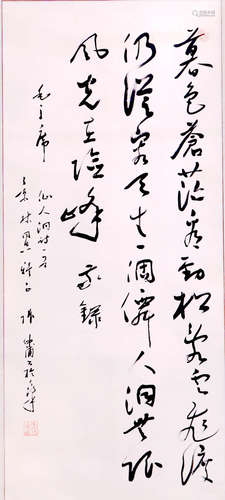 暮色蒼茫看勁松亂雲飛渡
仍從容天生一個僊人洞無限
風光在險峰 敬錄
毛主席 仙人洞詩一首